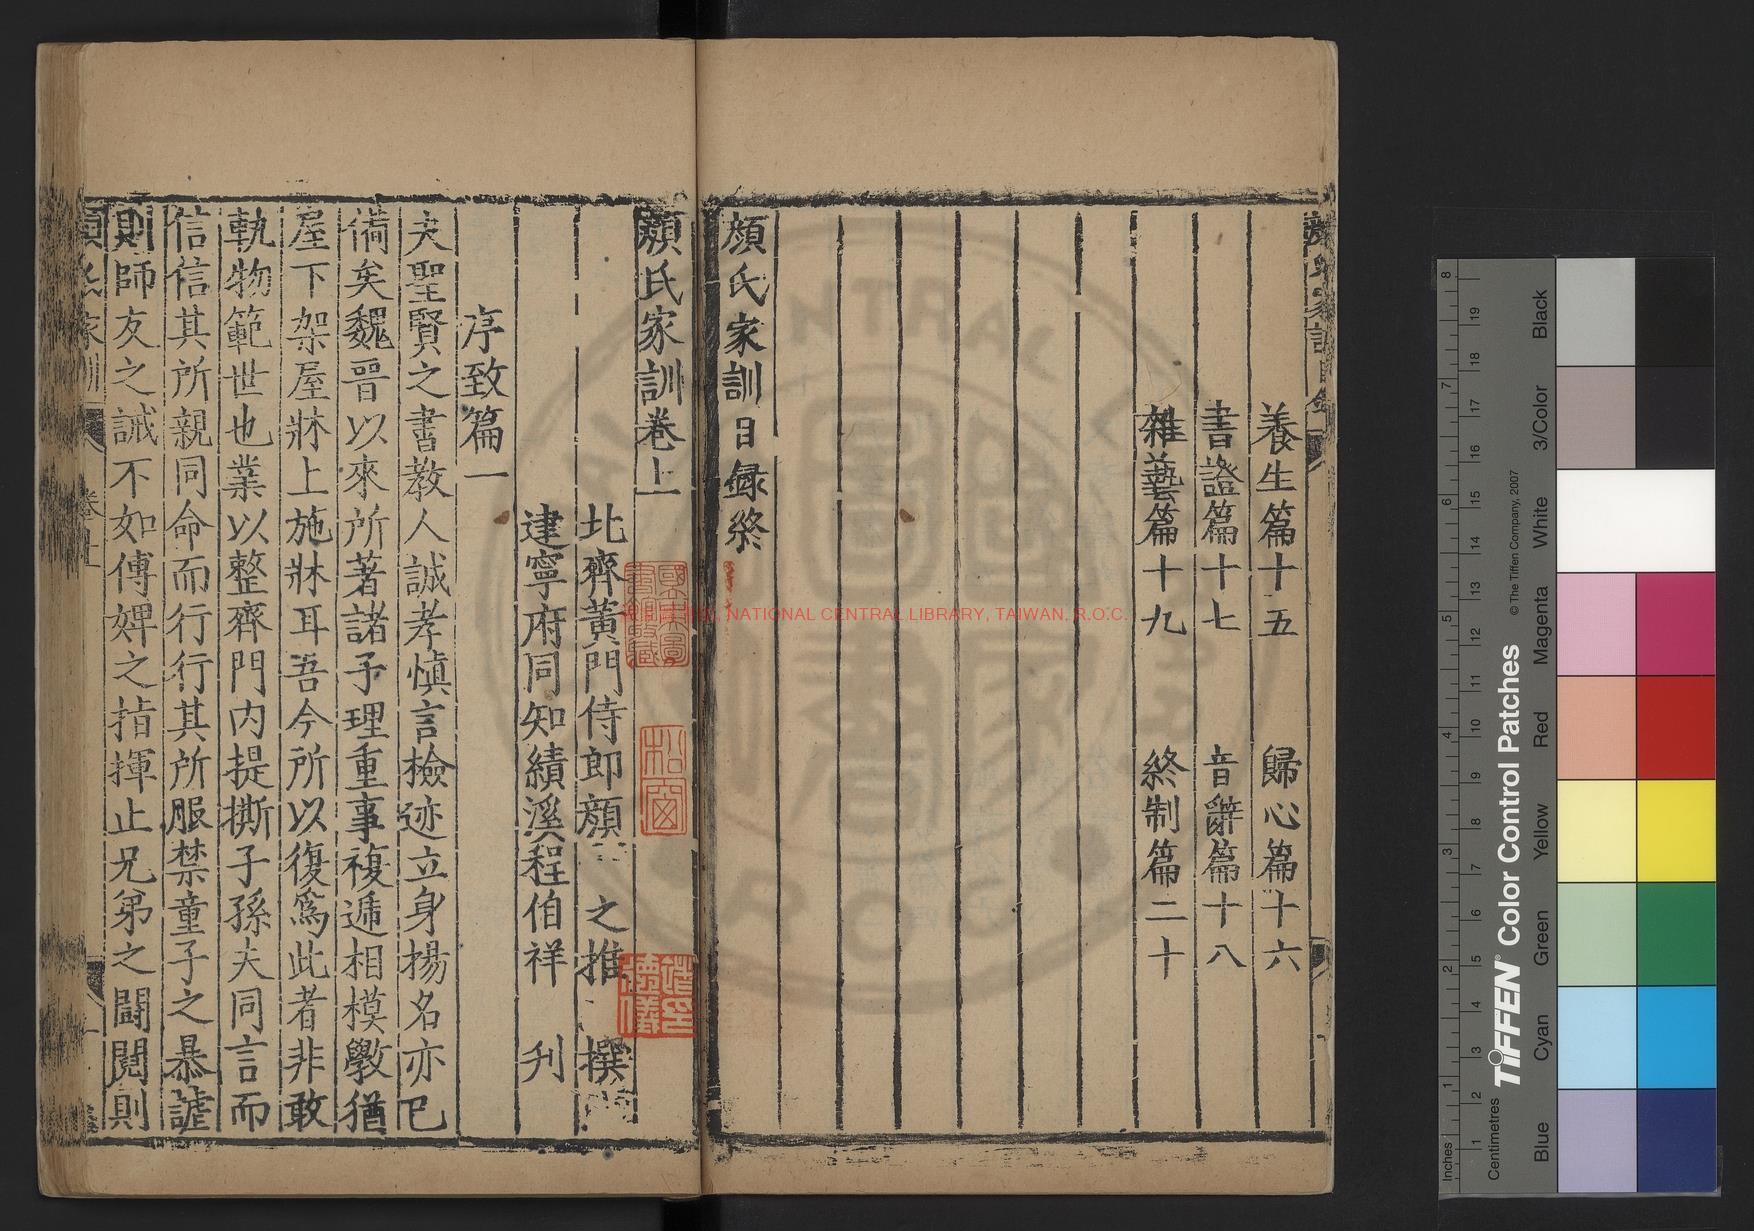 養生篇十五　歸心篇十六
書證篇十七　音辭篇十八
雜藝篇十九　終制篇二十
顔氏家訓目録終
顔氏家訓卷上
北齊黃門侍郎顔　之推　撰
建寧府同知績溪程伯祥　刋
序致篇一
夫聖賢之書教人誠孝慎言檢迹立身揚名亦已
備矣魏晉以來所著諸子理重事複遞相模斆猶
屋下架屋牀上施牀耳吾今所以復爲此者非敢
軌物範世也業以整齊門內提撕子孫夫同言而
信信其所親同命而行行其所服禁童子之暴謔
則師友之誡不如傅婢之指揮止兄弟之鬪鬩則
顔氏家訓
卷上
松窗
NATIONAL CENTRAL LIBRARY, TAIWAN, R.O.C.
TIFFEN® Color Control Patches
© The Tiffen Company, 2007
Inches
1 2 3 4 5 6 7 8
Centimetres
1 2 3 4 5 6 7 8 9 10 11 12 13 14 15 16 17 18 19
Blue
Cyan
Green
Yellow
Red
Magenta
White
3/Color
Black